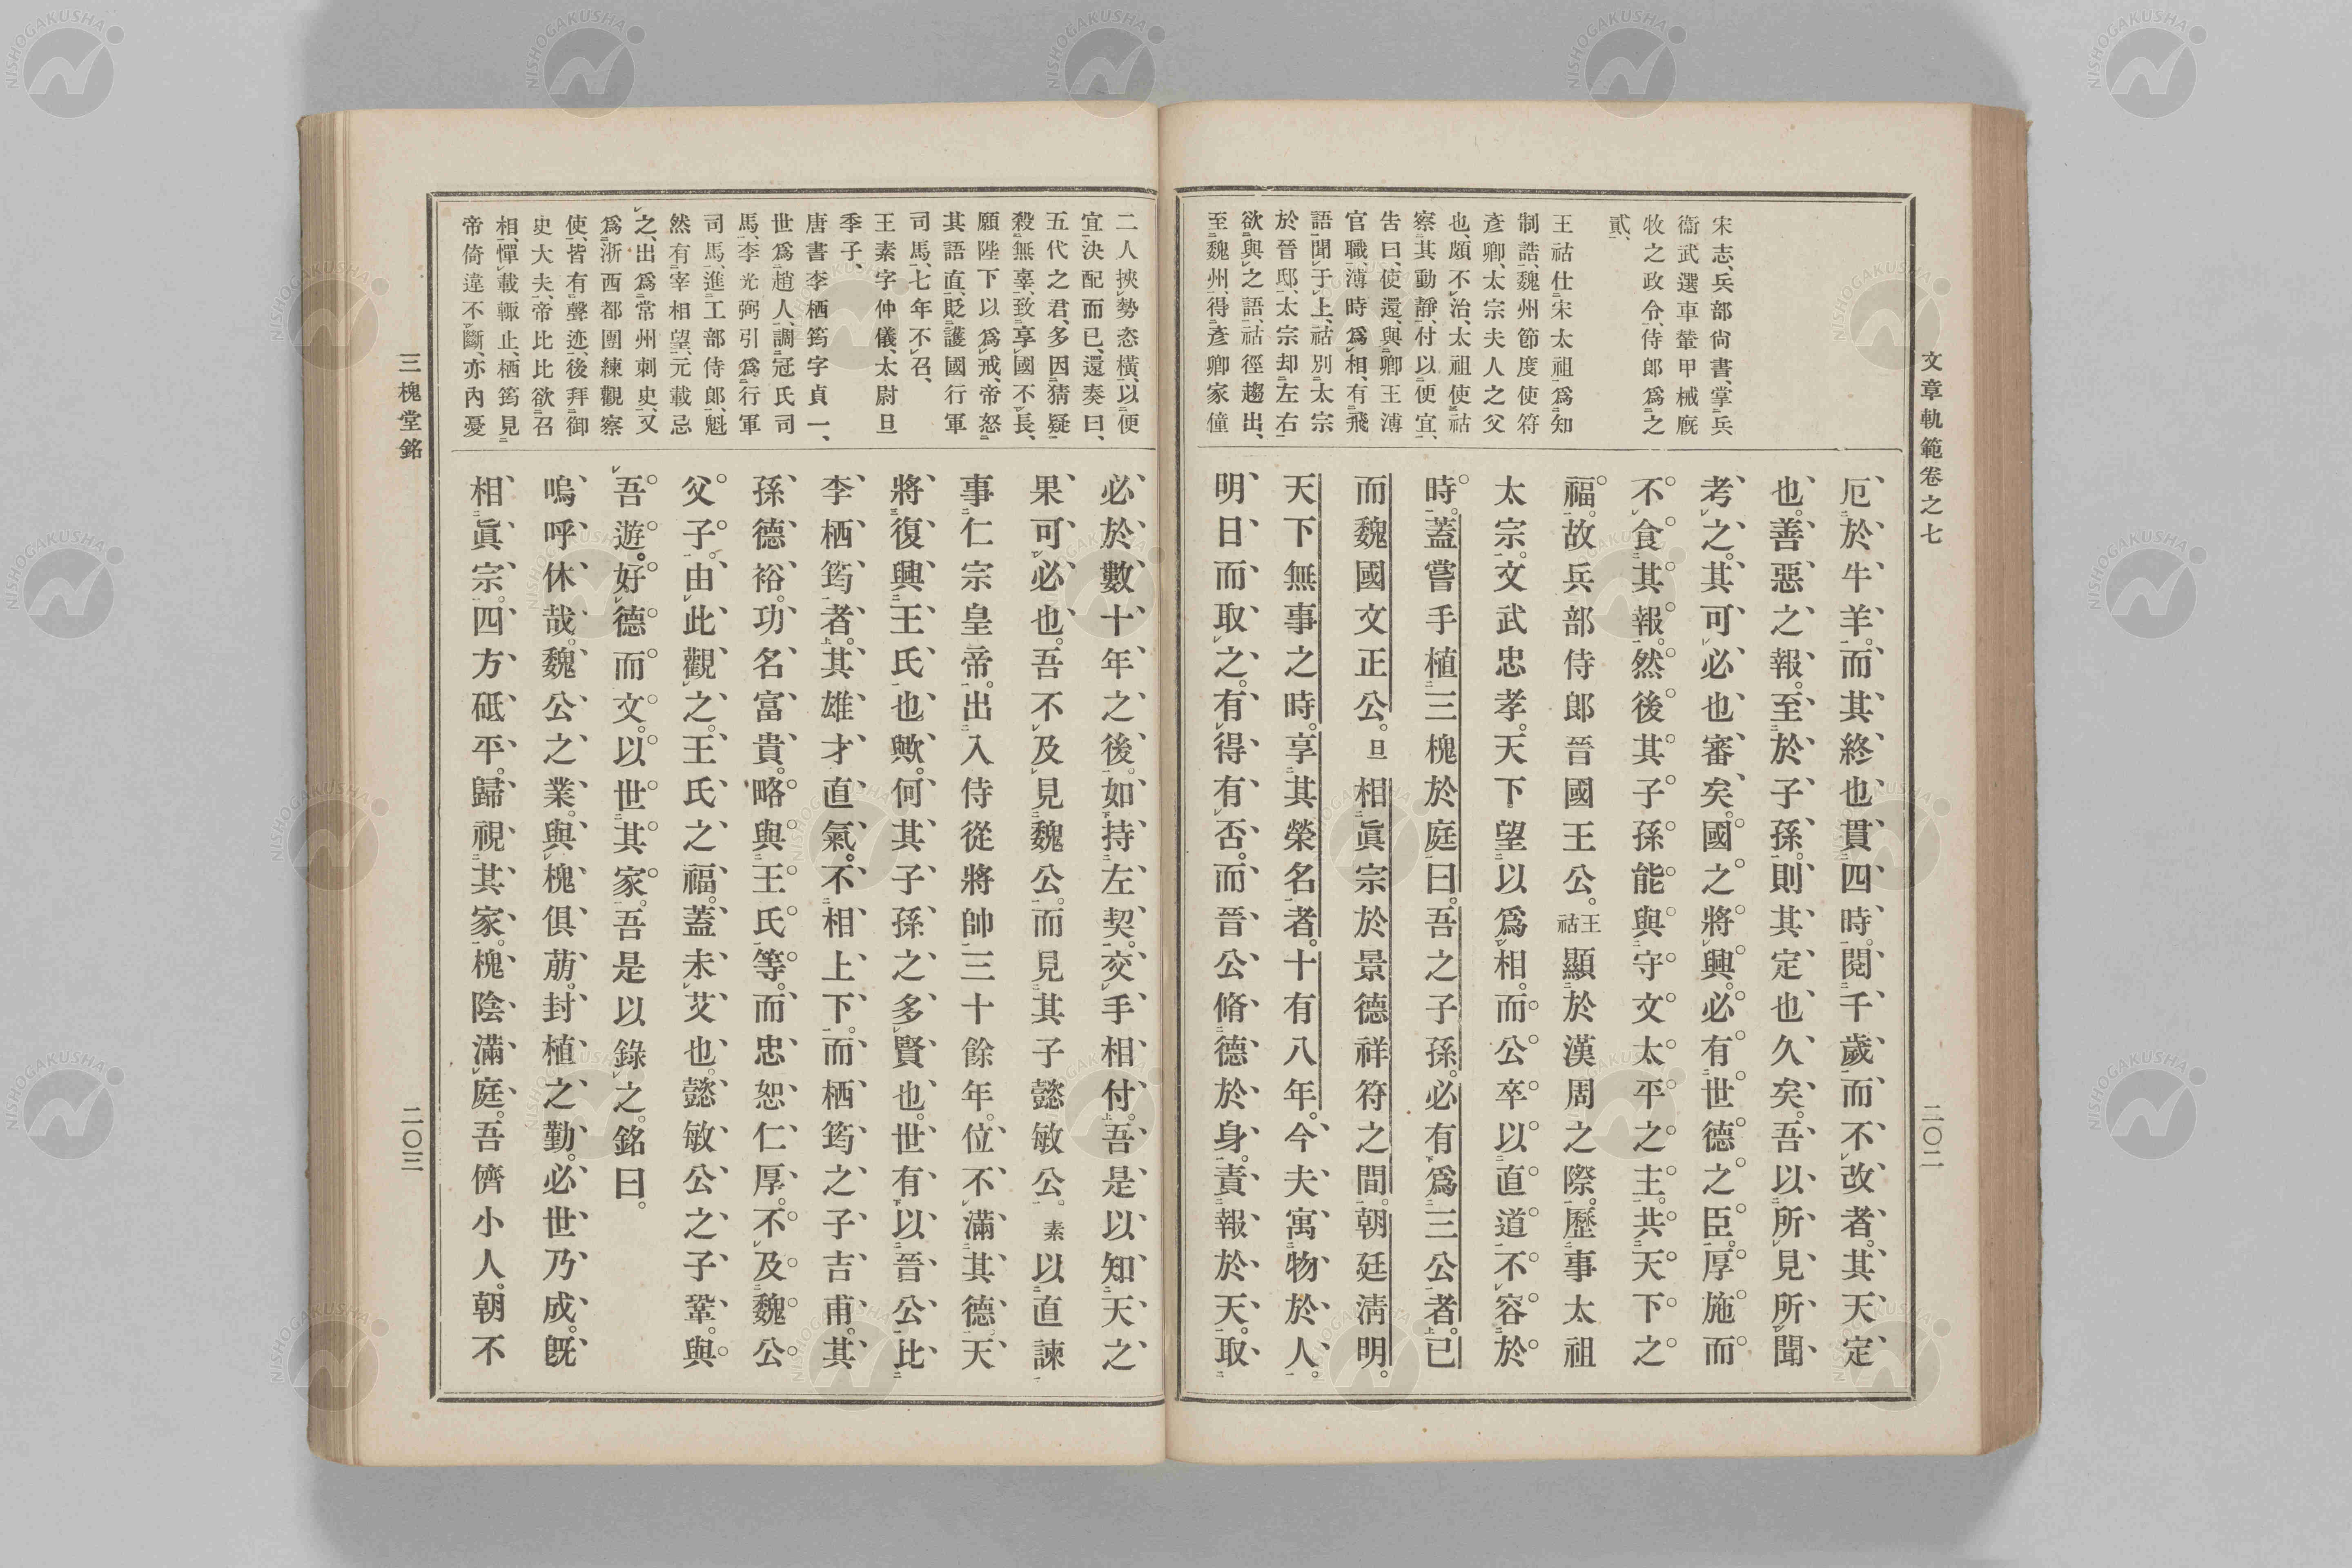 文章軌範卷之七
二〇二
宋志、兵部尙書、掌兵
衞武選車輦甲械廐
牧之政令、侍郞爲之
貳、
王祜仕宋太祖、爲知
制誥、魏州節度使符
彥卿、太宗夫人之父
也、頗不治、太祖使祜
察其動靜、付以便宜、
告曰、使還、與卿王溥
官職、溥時爲相、有飛
語聞于上、祜別太宗
於晉邸、太宗却左右
欲與之語、祜徑趨出、
至魏州、得彥卿家僮
厄於牛羊。而其終也貫四時。閱千歲而不改者。其天定
也。善惡之報。至於子孫。則其定也久矣。吾以所見所聞
考之。其可必也審矣。國之將興。必有世德之臣。厚施而
不食其報。然後其子孫能與守文太平之主。共天下之
福。故兵部侍郞晉國王公。王祜顯於漢周之際。歷事太祖
太宗。文武忠孝。天下望以爲相。而公卒以直道不容於
時。蓋嘗手植三槐於庭曰。吾之子孫。必有爲三公者。已
而魏國文正公。旦相眞宗於景德祥符之間。朝廷淸明。
天下無事之時。享其榮名者。十有八年。今夫寓物於人。
明日而取之。有得有否。而晉公脩德於身。責報於天。取
二人挾勢恣橫、以便
宜決配而已、還奏曰、
五代之君、多因猜疑
殺無辜、致享國不長、
願陛下以爲戒、帝怒
其語直、貶護國行軍
司馬、七年不召、
王素字仲儀、太尉旦
季子、
唐書李栖筠字貞一、
世爲趙人、調冠氏司
馬、李光弼引爲行軍
司馬、進工部侍郞、魁
然有宰相望、元載忌
之、出爲常州刺史、又
爲浙西都團練觀察
使、皆有聲迹、後拜御
史大夫、帝比比欲召
相、憚載輒止、栖筠見
帝倚違不斷、亦內憂
必於數十年之後。如持左契。交手相付。吾是以知天之
果可必也。吾不及見魏公。而見其子懿敏公。素以直諫
事仁宗皇帝。出入侍從將帥三十餘年。位不滿其德。天
將復興王氏也歟。何其子孫之多賢也。世有以晉公比
李栖筠者。其雄才直氣。不相上下。而栖筠之子吉甫。其
孫德裕。功名富貴。略與王氏等。而忠恕仁厚。不及魏公
父子。由此觀之。王氏之福。蓋未艾也。懿敏公之子鞏。與
吾遊。好德而文。以世其家。吾是以錄之。銘曰。
嗚呼休哉。魏公之業。與槐俱萠。封植之勤。必世乃成。旣
相眞宗。四方砥平。歸視其家。槐陰滿庭。吾儕小人。朝不
三槐堂銘
二〇三